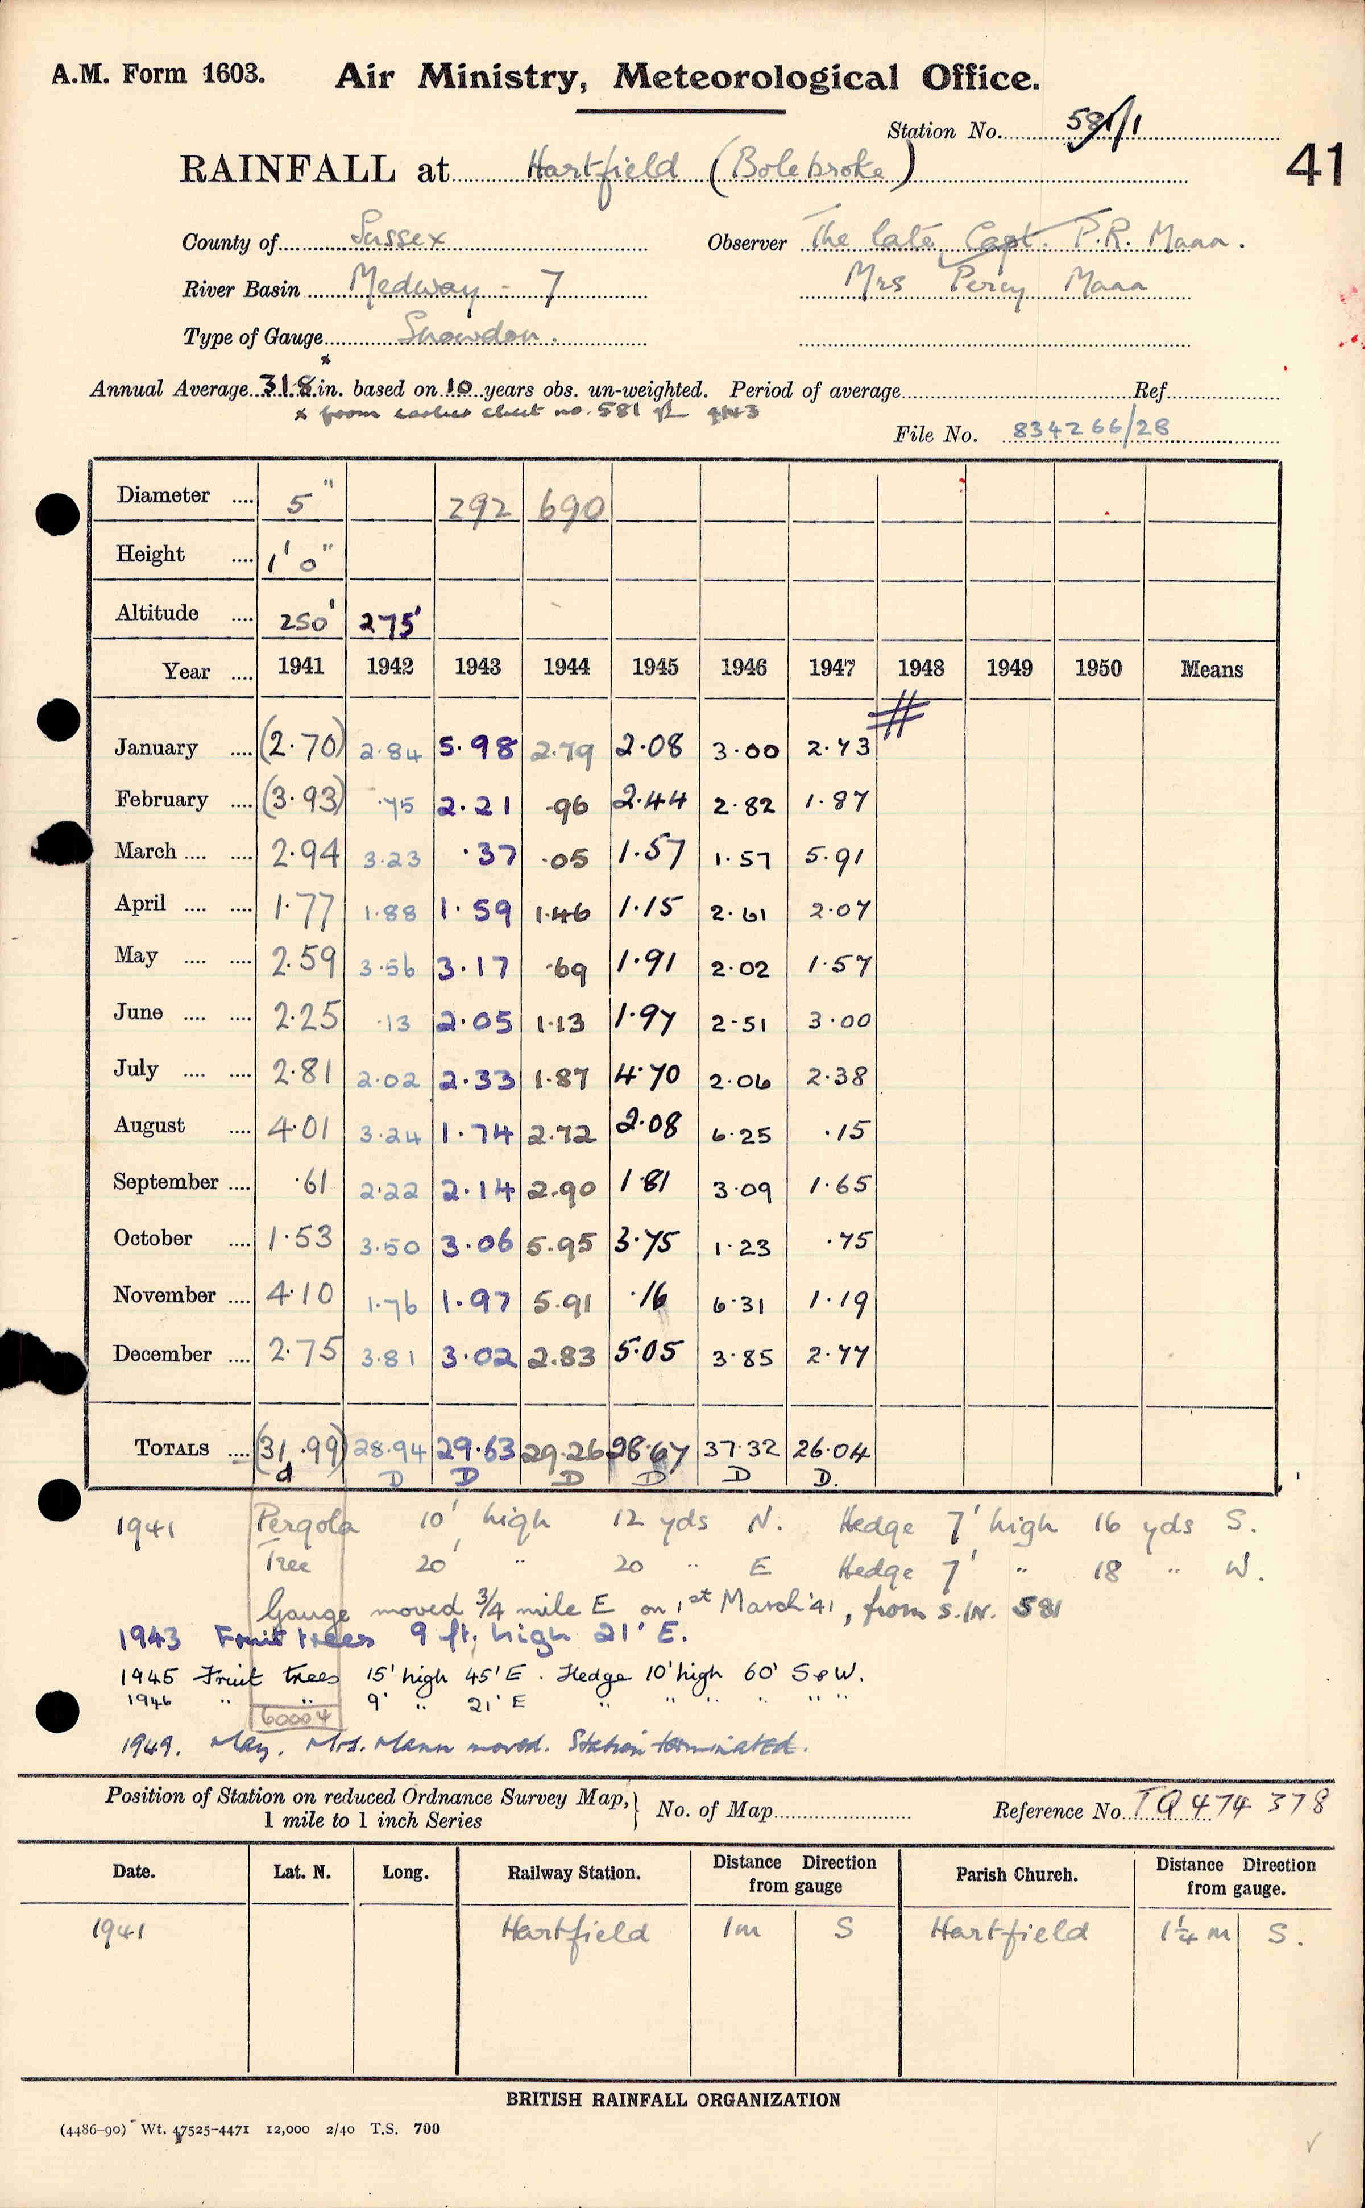 A.M. Form 1603. Air Ministry, Meteorological Office.
Station No. 581/1
41
RAINFALL at Hartfield (Bolebroke)
County of Sussex Observer The late Capt. P.R. Mann.
River Basin Medway - 7 Mrs Percy Mann
Type of Gauge Snowdon.
Annual Average 31.8 in. based on 10 years obs. un-weighted. Period of average Ref
x from earlier sheet no. 581
File No. 834266/28
Diameter .... 5" 292 690
Height .... 1' 0"
Altitude .... 250' 275'
Year .... 1941 1942 1943 1944 1945 1946 1947 1948 1949 1950 Means
January .... (2.70) 2.84 5.98 2.79 2.08 3.00 2.73 #
February .... (3.93) .75 2.21 .96 2.44 2.82 1.87
March .... .... 2.94 3.23 .37 .05 1.57 1.57 5.91
April .... .... 1.77 1.88 1.59 1.46 1.15 2.61 2.07
May .... .... 2.59 3.56 3.17 .69 1.91 2.02 1.57
June .... .... 2.25 .13 2.05 1.13 1.97 2.51 3.00
July .... .... 2.81 2.02 2.33 1.87 4.70 2.06 2.38
August .... 4.01 3.24 1.74 2.72 2.08 6.25 .15
September .... .61 2.22 2.14 2.90 1.81 3.09 1.65
October .... 1.53 3.50 3.06 5.95 3.75 1.23 .75
November .... 4.10 1.76 1.97 5.91 .16 6.31 1.19
December .... 2.75 3.81 3.02 2.83 5.05 3.85 2.77
TOTALS .... (31.99) 28.94 29.63 29.26 28.67 37.32 26.04
d D D D D D D.
1941 Pergola 10' high 12 yds N. Hedge 7' high 16 yds S.
Tree 20' " 20 " E Hedge 7' " 18 " W.
Gauge moved 3/4 mile E on 1st March '41, from S.N. 581
1943 Fruit trees 9 ft. high 21' E.
1945 Fruit trees 15' high 45' E. Hedge 10' high 60' S & W.
1946 " " 9' " 21' E " " " " " "
60004
1949. May. Mrs. Mann moved. Station terminated.
Position of Station on reduced Ordnance Survey Map, 1 mile to 1 inch Series } No. of Map Reference No. TQ 474 378
Date. Lat. N. Long. Railway Station. Distance Direction from gauge Parish Church. Distance Direction from gauge.
1941 Hartfield 1m S Hartfield 1¼ m S.
BRITISH RAINFALL ORGANIZATION
(4486-90) Wt. 47525-4471 12,000 2/40 T.S. 700